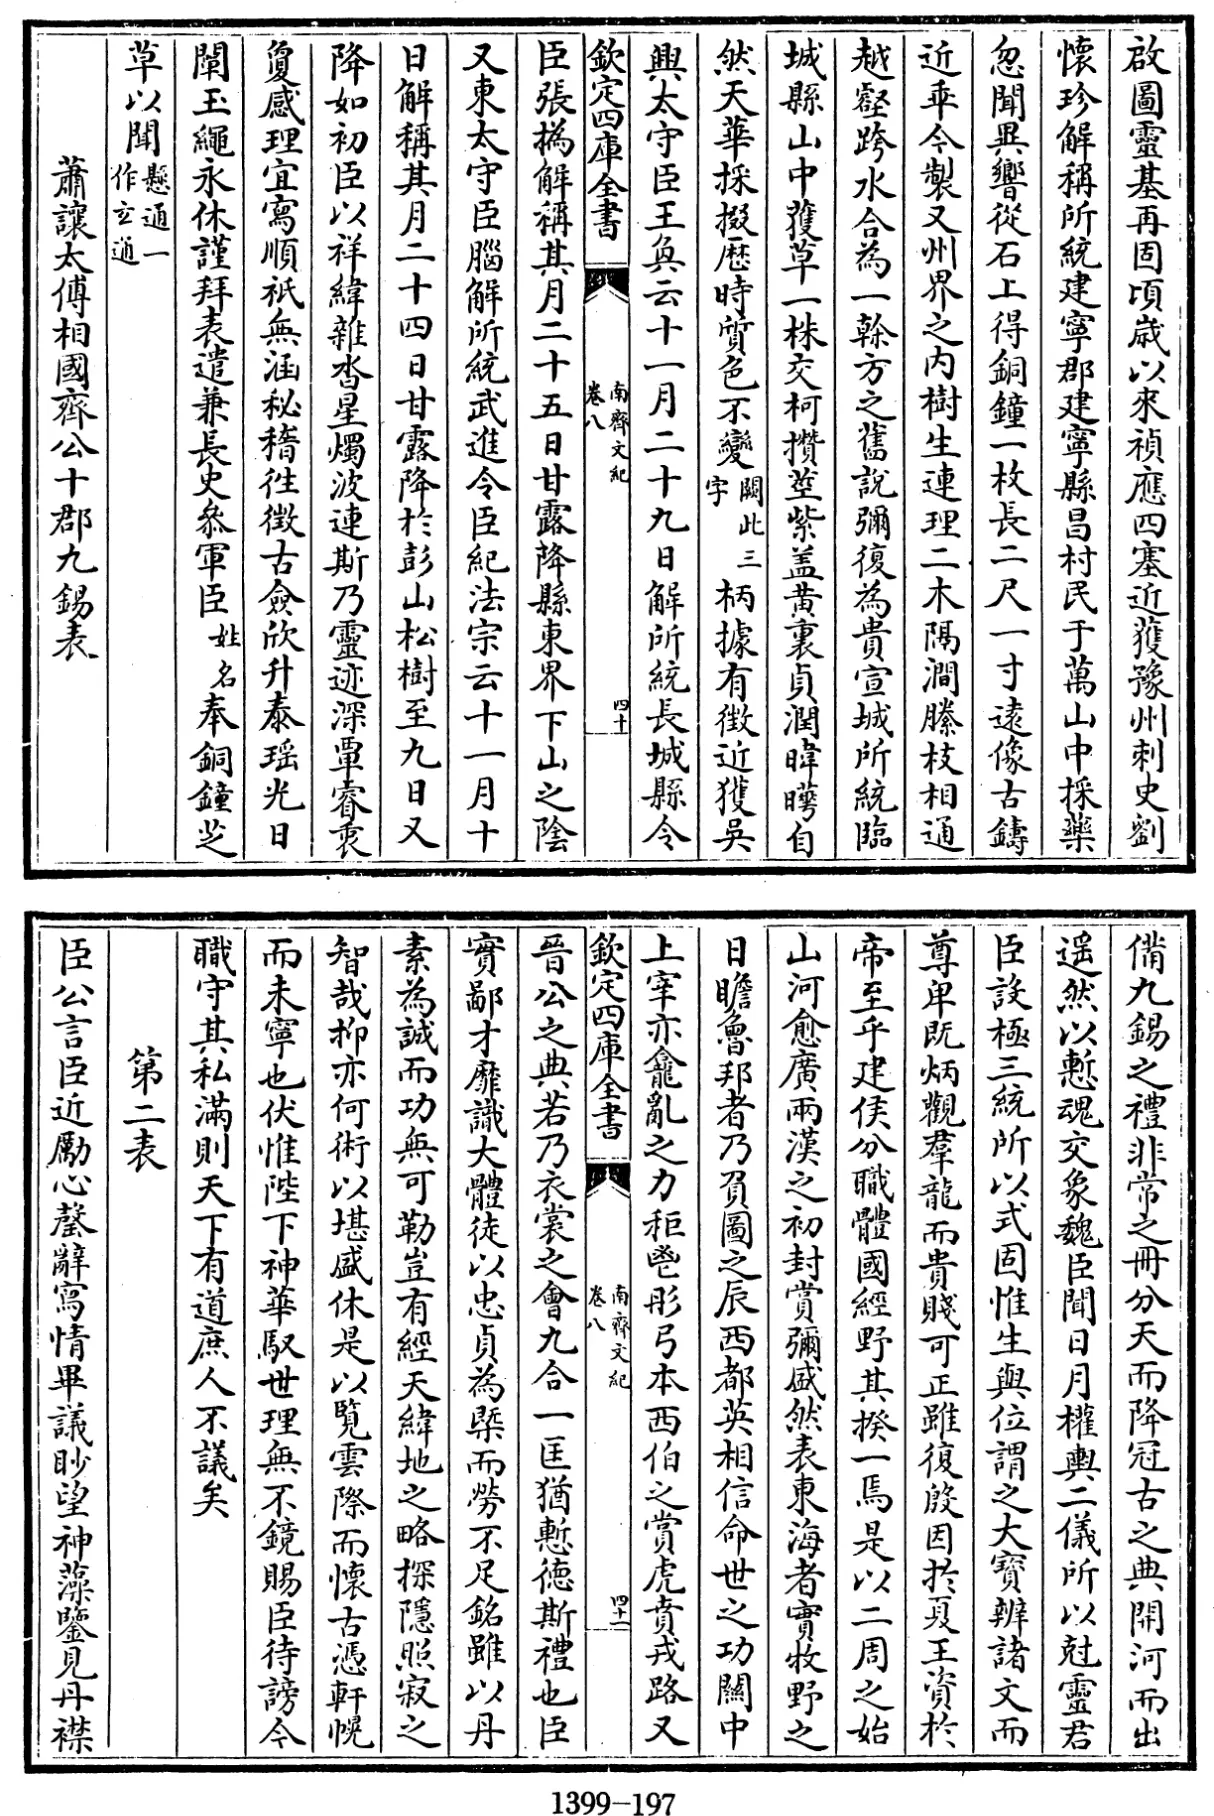 啟圖靈基再固頃歲以來禎應四塞近獲豫州刺史劉
懷珍解稱所統建寧郡建寧縣昌村民于萬山中採藥
忽聞異響從石上得銅鐘一枚長二尺一寸遠像古鑄
近乖今製又州界之内樹生連理二木隔澗騰枝相通
越壑跨水合為一榦方之舊說彌復為貴宣城所統臨
城縣山中獲草一株交柯攢莖紫盖黄裏貞潤暐曄自
然天華採掇歷時質色不變闕此三字柄據有徴近獲吳
興太守臣王奐云十一月二十九日解所統長城縣令
欽定四庫全書
南齊文紀
卷八
四十
臣張檇解稱其月二十五日甘露降縣東界下山之陰
又東太守臣腦解所統武進令臣紀法宗云十一月十
日解稱其月二十四日甘露降於彭山松樹至九日又
降如初臣以祥緯雜沓星燭波連斯乃靈迹深覃睿衷
夐感理宜寫順祇無涵秘稽徃徴古僉欣升泰瑶光日
闡玉繩永休謹拜表遣兼長史叅軍臣姓名奉銅鐘芝
草以聞懸通一作玄通
蕭讓太傅相國齊公十郡九錫表
備九錫之禮非常之冊分天而降冠古之典開河而出
遥然以慙魂交象魏臣聞日月權輿二儀所以尅靈君
臣設極三統所以式固惟生與位謂之大寳辨諸文而
尊卑既炳觀羣龍而貴賤可正雖復殷因於夏王資於
帝至乎建侯分職體國經野其揆一焉是以二周之始
山河愈廣兩漢之初封賞彌盛然表東海者實牧野之
日瞻魯邦者乃負圖之辰西都英相信命世之功闗中
上宰亦龕亂之力秬鬯彤弓本西伯之賞虎賁戎路又
欽定四庫全書
南齊文紀
卷八
四十一
晉公之典若乃衣裳之會九合一匡猶慙徳斯禮也臣
實鄙才靡識大體徒以忠貞為槩而勞不足銘雖以丹
素為誠而功無可勒豈有經天緯地之略探隱照寂之
智哉抑亦何術以堪盛休是以覽雲際而懷古憑軒幌
而未寧也伏惟陛下神華馭世理無不鏡賜臣待謗今
職守其私滿則天下有道庶人不議矣
第二表
臣公言臣近勵心罄辭寫情畢議眇望神藻鑒見丹襟
1399-197